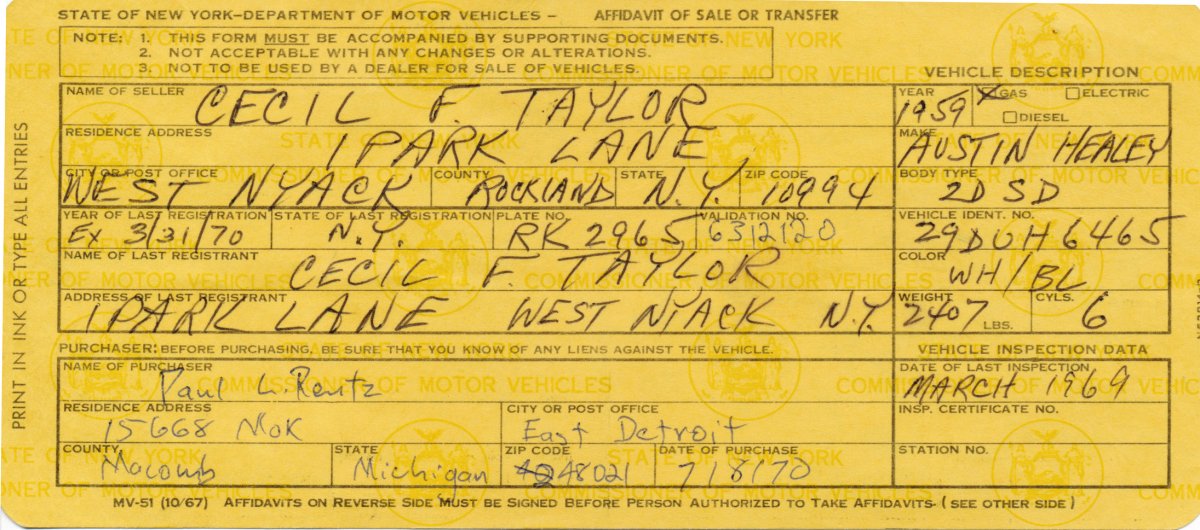 STATE OF NEW YORK–DEPARTMENT OF MOTOR VEHICLES – AFFIDAVIT OF SALE OR TRANSFER
NOTE: 1. THIS FORM MUST BE ACCOMPANIED BY SUPPORTING DOCUMENTS.
2. NOT ACCEPTABLE WITH ANY CHANGES OR ALTERATIONS.
3. NOT TO BE USED BY A DEALER FOR SALE OF VEHICLES.
VEHICLE DESCRIPTION
PRINT IN INK OR TYPE ALL ENTRIES
NAME OF SELLER CECIL F. TAYLOR
YEAR 1959 X GAS ELECTRIC
DIESEL
RESIDENCE ADDRESS 1 PARK LANE
MAKE AUSTIN HEALEY
CITY OR POST OFFICE WEST NYACK COUNTY ROCKLAND STATE N.Y. ZIP CODE 10994
BODY TYPE 2D SD
YEAR OF LAST REGISTRATION Ex 3/31/70 STATE OF LAST REGISTRATION N.Y. PLATE NO. RK 2965 VALIDATION NO. 6312120
VEHICLE IDENT. NO. 29DUH6465
NAME OF LAST REGISTRANT CECIL F. TAYLOR
COLOR WH/BL
ADDRESS OF LAST REGISTRANT 1 PARK LANE WEST NYACK N.Y.
WEIGHT 2407 LBS. CYLS. 6
PURCHASER: BEFORE PURCHASING, BE SURE THAT YOU KNOW OF ANY LIENS AGAINST THE VEHICLE.
VEHICLE INSPECTION DATA
NAME OF PURCHASER Paul L. Rentz
DATE OF LAST INSPECTION MARCH 1969
RESIDENCE ADDRESS 15668 Mok CITY OR POST OFFICE East Detroit
INSP. CERTIFICATE NO.
COUNTY Macomb STATE Michigan ZIP CODE 48021 DATE OF PURCHASE 7/8/70
STATION NO.
MV-51 (10/67) AFFIDAVITS ON REVERSE SIDE MUST BE SIGNED BEFORE PERSON AUTHORIZED TO TAKE AFFIDAVITS- (SEE OTHER SIDE)